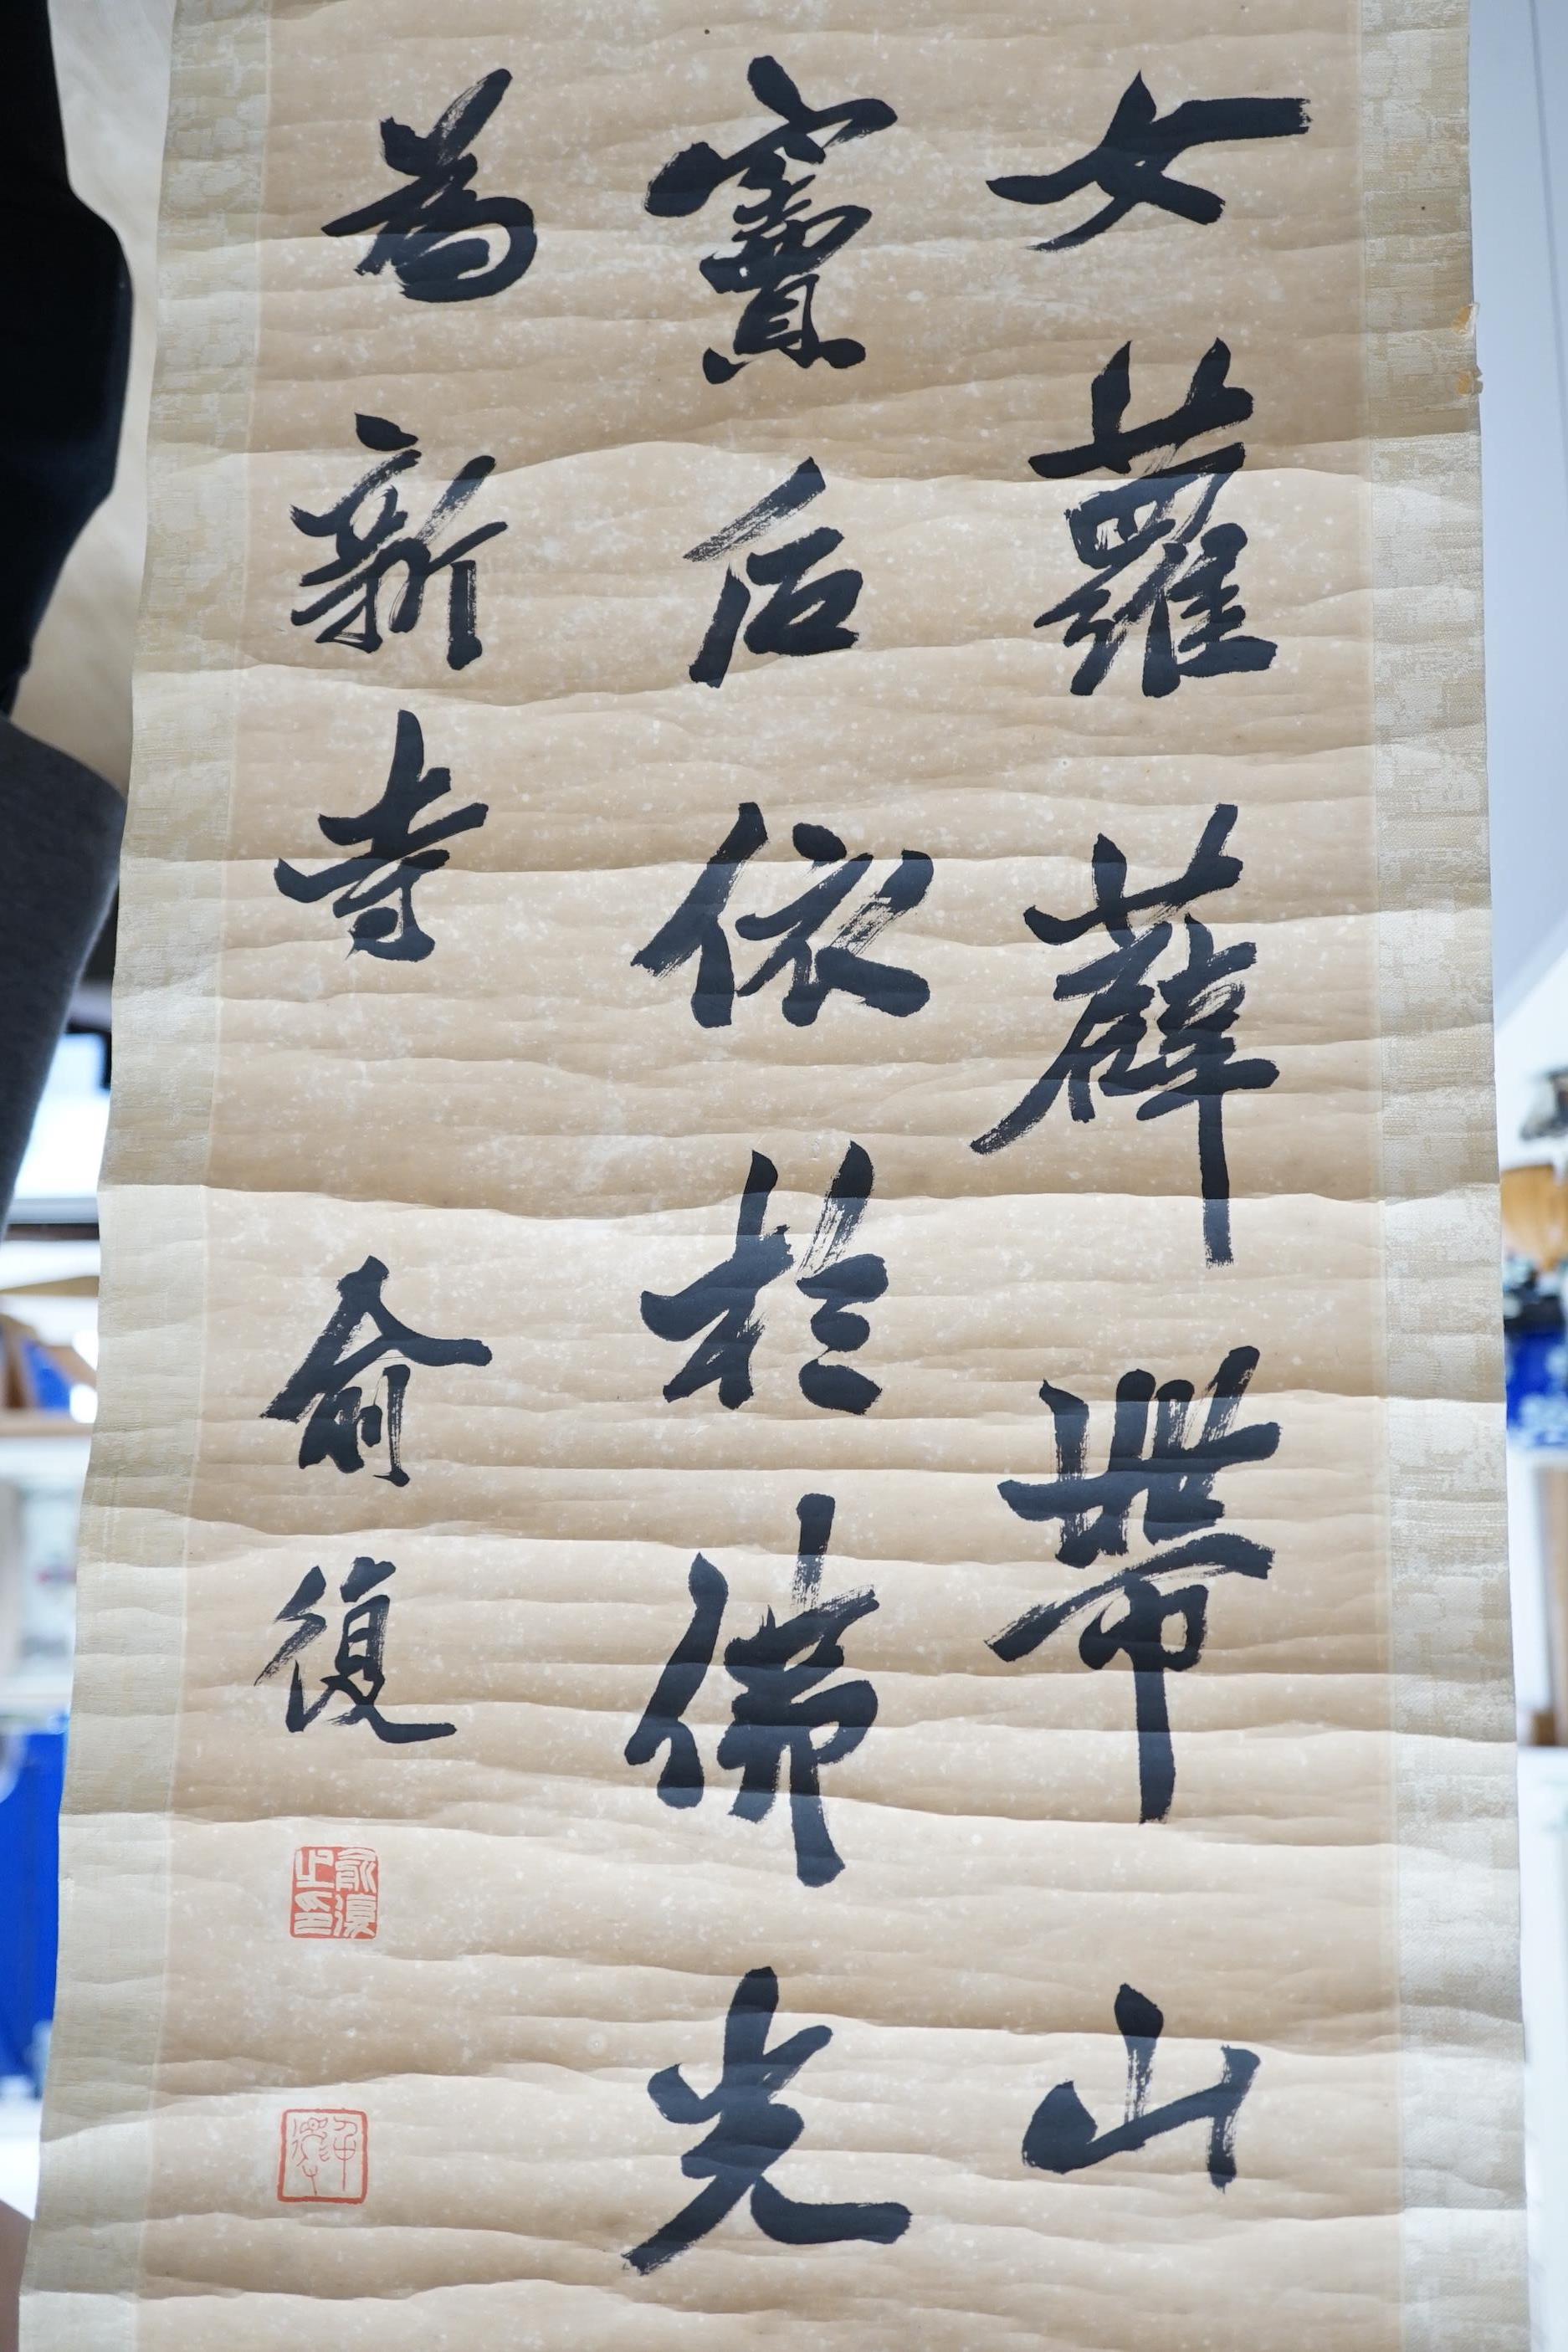 女蘿薜帶山
寶后依於佛光
為新寺 俞復
俞復之印